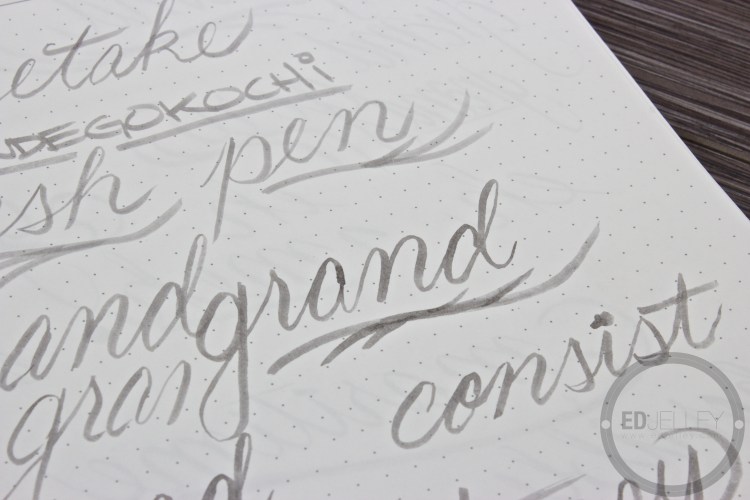 etake
NDEGOKOCHi
sh pen
and grand
gran consist
ED JELLEY